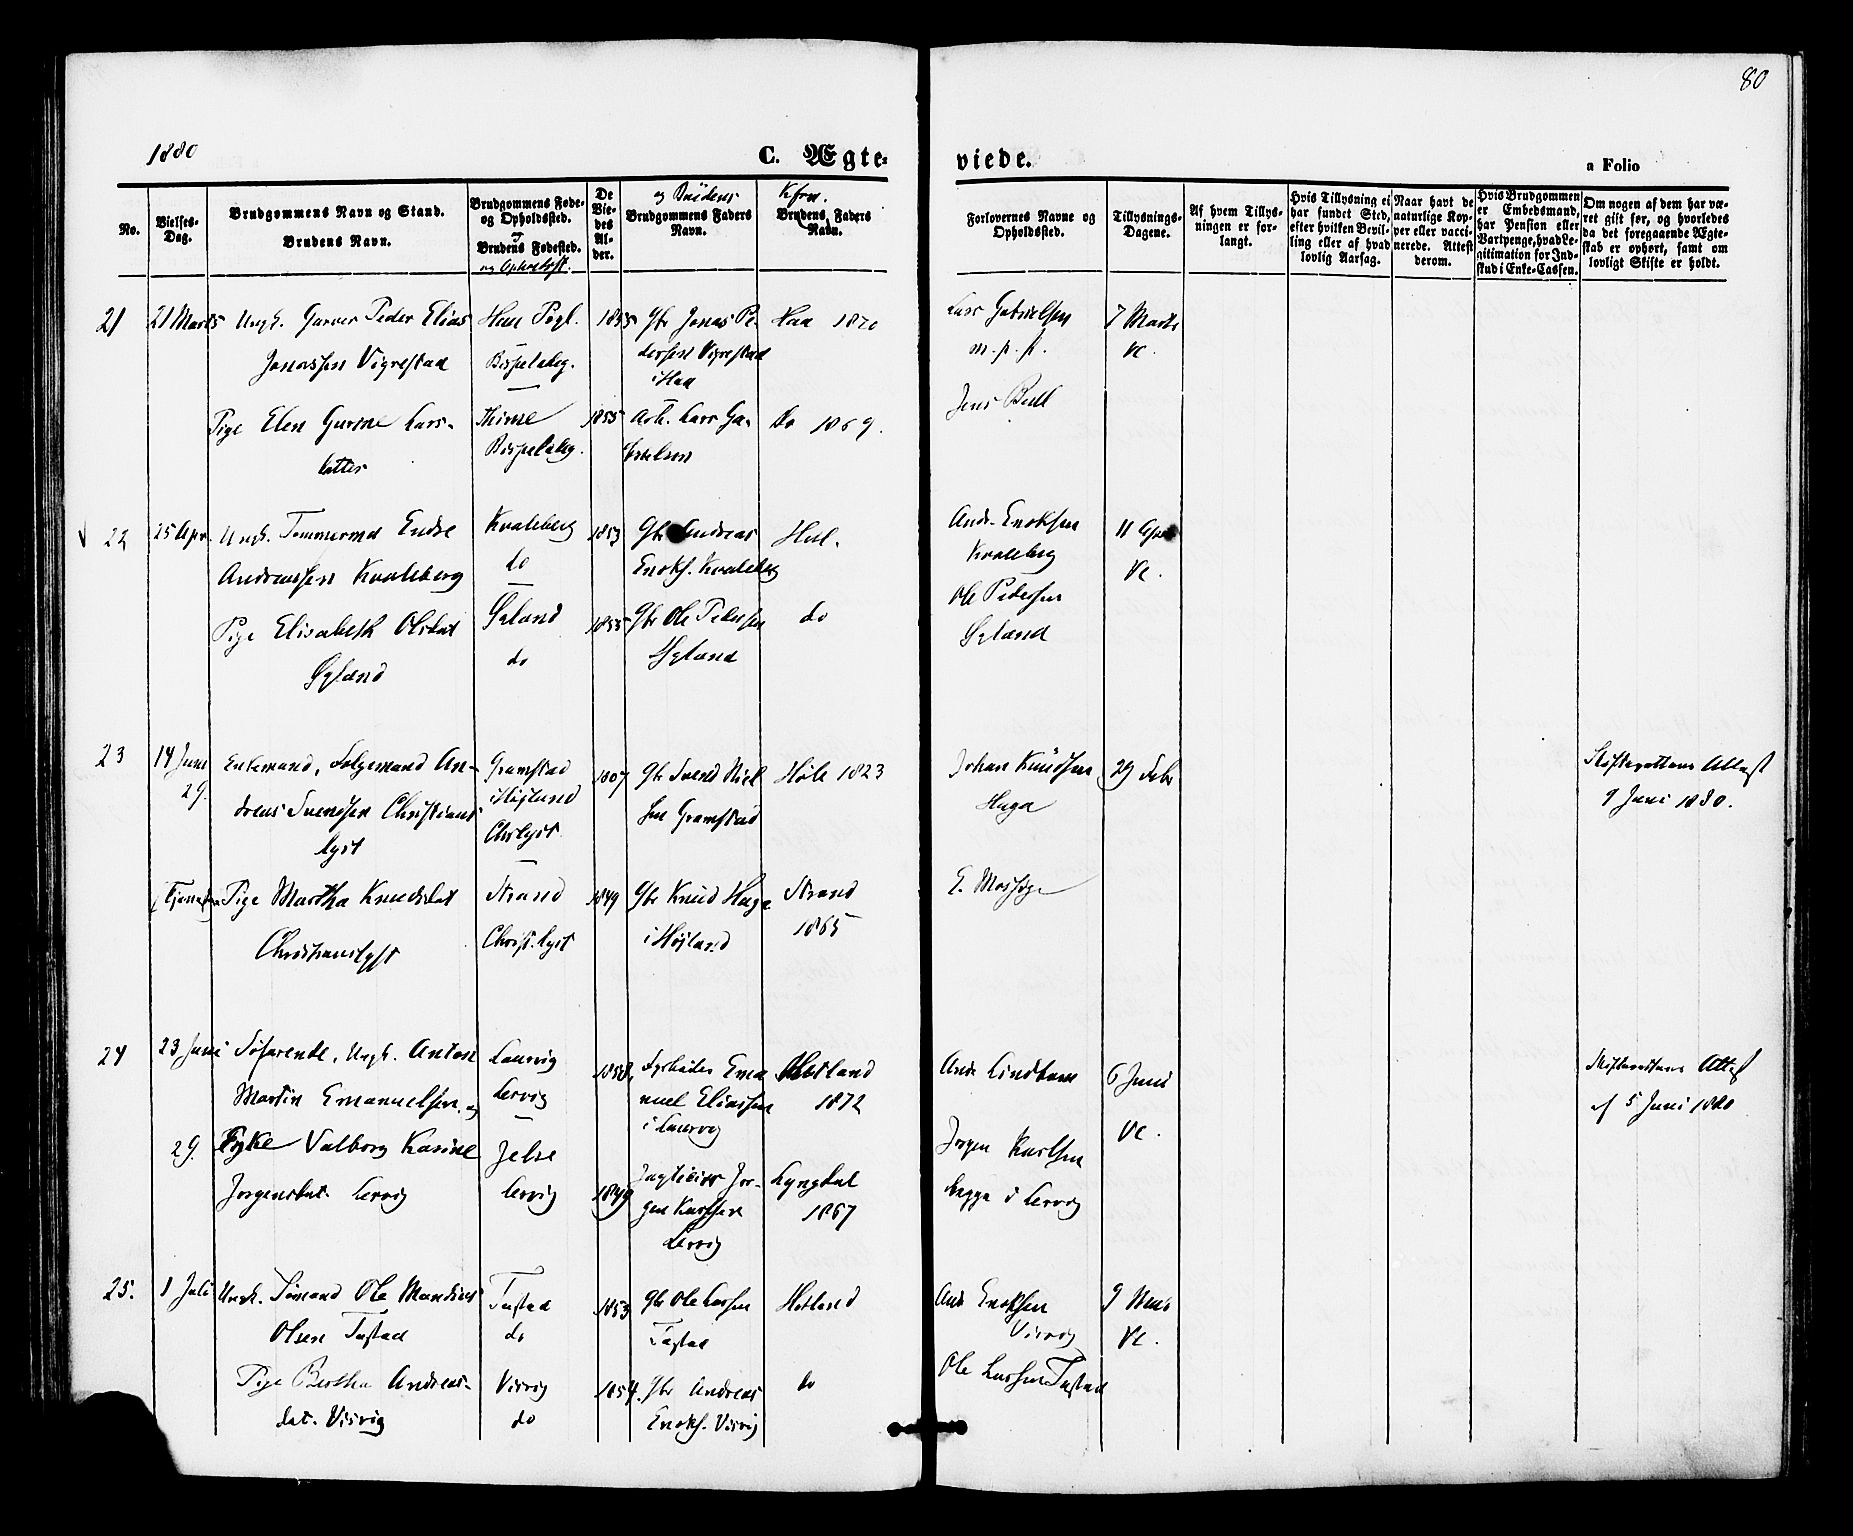 80
1880
C. Ægte-
viede.
a Folio
No.
Vielses-
Dag.
Brudgommens Navn og Stand.
Brudens Navn.
Brudgommens Føde-
og Opholdssted.
Brudens Fødested.
De
Vie-
des
Al-
der.
og Brudens
Brudgommens Faders
Navn.
Kfon.
Brudens Faders
Navn.
Forlovernes Navne og
Opholdssted.
Tillysnings-
Dagene.
Af hvem Tillys-
ningen er for-
langt.
Hvis Tillysning ei
har fundet Sted,
efter hvilken Bevil-
ling eller af hvad
lovlig Aarsag.
Naar havt de
naturlige Kop-
per eller vacci-
nerede. Attest
derom.
Hvis Brudgommen
er Embedsmand,
har Pension eller
Vartpenge, hvad Le-
gitimation for Ind-
skud i Enke-Cassen.
Om nogen af dem har væ-
ret gift før, og hvorledes
da det foregaaende Ægte-
skab er ophørt, samt om
lovligt Skifte er holdt.
21
21 Marts
Ungk. Garver Peder Elias
Jonassen Vigrestad
Haa Pgl.
Bispeladeg.
1855
Gbr Jonas Pe-
dersen Vigrestad
i Haa
Haa 1870
Lars Gabrielsen
m. p. p.
7 Marts
Vc.
Jens Bull
Pige Elen Gurine Lars-
datter
Thime
Bispeladeg.
1855
Arb. Lars Ga-
brielsen
do 1869.
22
25 Apr.
Ungk. Tømmermd Endre
Andreassen Kvaleberg
Kvaleberg
do
1853
Gbr Andreas
Enoks. Kvaleberg
Hetl.
Andr. Enoksen
Kvaleberg
11 Apr
Vc.
Pige Elisabeth Olsdat
Gyland
do
1855
Gbr Ole Pedersen
do
Ole Pedersen
23
14 Juni
29.
Enkemand, Følgemand An-
dreas Svendsen Christians
lyst
Gramstad
i Højland
Chrlyst
1807
Gbr Svend Niel
sen Gramstad
Høle 1823
Johan Knudsen
Haga
29 Febr
Skifterettens Attest
9 Juni 1880.
Pige Martha Knudsdat
Christianslyst
Strand
Christ. lyst
1849
Gbr Knud Haga
i Højland
Strand
1865
24
23 Juni
Søfarende, Ungk. Anton
Martin Emanuelsen og
Laurvig
Lervig
1858
Ema
nuel Eliassen
i Laurvig
Hetland
1872
Andr Lindtem
6 Juni
Vc.
Skifterettens Attest
af 5 Juni 1880
29.
Valborg Karine
Jorgensdat. Lervig
Jelse
Lervig
1849
Jor-
gen Karlsen
Lervig
Lyngdal
1867
Jorgen Karlsen
Bagge i Lervig
25.
1 Juli
Ungk. Sømand Ole Mandius
Olsen Tastad
Tastad
do
1853
Gbr Ole Larsen
Tastad
Hetland
Andr Enoksen
Visvig
9 Mai
Vc.
Pige Bertha Andreas-
dat. Visvig
Visvig
do
1854.
Gbr Andreas
Enoks. Visvig
do
Ole Larsen Tastad